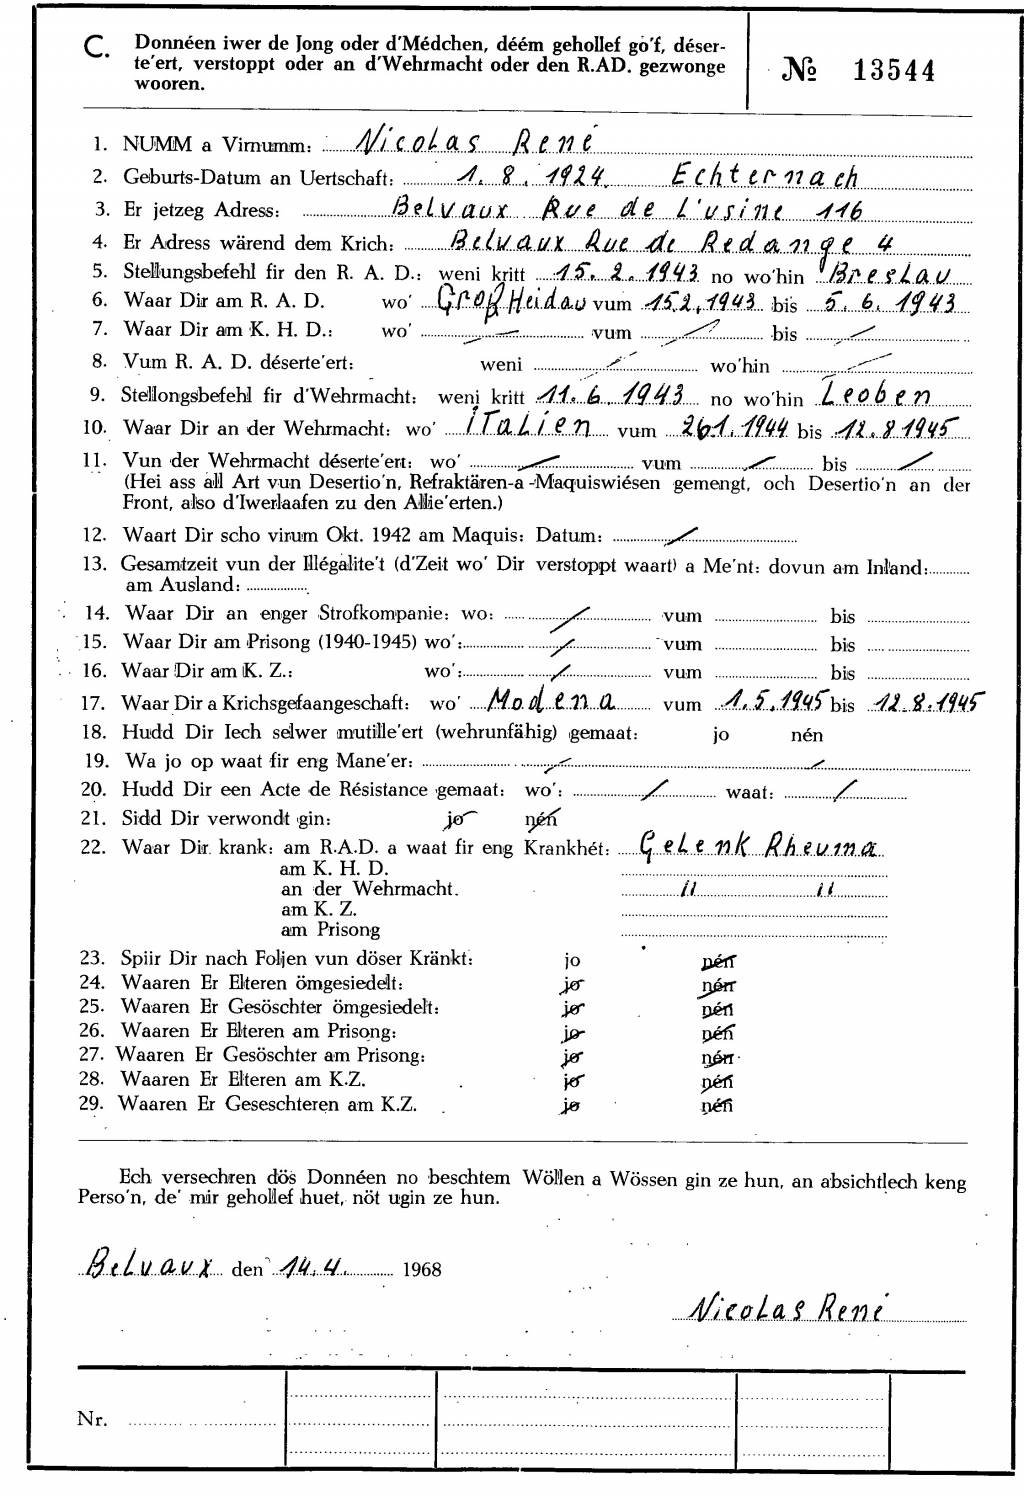 C. Donnéen iwer de Jong oder d'Médchen, déém gehollef go'f, déser-
te'ert, verstoppt oder an d'Wehrmacht oder den R.AD. gezwonge
wooren.
№ 13544
1. NUMM a Virnumm: Nicolas René
2. Geburts-Datum an Uertschaft: 1. 8. 1924. Echternach
3. Er jetzeg Adress: Belvaux Rue de L'usine 116
4. Er Adress wärend dem Krich: Belvaux Rue de Redange 4
5. Stellungsbefehl fir den R. A. D.: weni kritt 15. 2. 1943 no wo'hin Breslau
6. Waar Dir am R. A. D. wo' Groß Heidau vum 15.2.1943 bis 5. 6. 1943
7. Waar Dir am K. H. D.: wo' vum bis
8. Vum R. A. D. déserte'ert: weni wo'hin
9. Stellongsbefehl fir d'Wehrmacht: weni kritt 11. 6. 1943 no wo'hin Leoben
10. Waar Dir an der Wehrmacht: wo' iTalien vum 26 1. 1944 bis 12. 8 1945
11. Vun der Wehrmacht déserte'ert: wo' vum bis
(Hei ass all Art vun Desertio'n, Refraktären-a-Maquiswiésen gemengt, och Desertio'n an der
Front, also d'Iwerlaafen zu den Allie'erten.)
12. Waart Dir scho virum Okt. 1942 am Maquis: Datum:
13. Gesamtzeit vun der Illégalite't (d'Zeit wo' Dir verstoppt waart) a Me'nt: dovun am Inland:
am Ausland:
14. Waar Dir an enger Strofkompanie: wo: vum bis
15. Waar Dir am Prisong (1940-1945) wo': vum bis
16. Waar Dir am K. Z.: wo': vum bis
17. Waar Dir a Krichsgefaangeschaft: wo' Modena vum 1. 5. 1945 bis 12. 8. 1945
18. Hudd Dir Iech selwer mutille'ert (wehrunfähig) gemaat: jo nén
19. Wa jo op waat fir eng Mane'er:
20. Hudd Dir een Acte de Résistance gemaat: wo': waat:
21. Sidd Dir verwondt gin: jo nén
22. Waar Dir krank: am R.A.D. a waat fir eng Krankhét: Gelenk Rheuma
am K. H. D.
an der Wehrmacht. " "
am K. Z.
am Prisong
23. Spiir Dir nach Foljen vun döser Kränkt: jo nén
24. Waaren Er Elteren ömgesiedelt: jo nén
25. Waaren Er Gesöschter ömgesiedelt: jo nén
26. Waaren Er Elteren am Prisong: jo nén
27. Waaren Er Gesöschter am Prisong: jo nén
28. Waaren Er Elteren am K.Z. jo nén
29. Waaren Er Geseschteren am K.Z. jo nén
Ech versechren dös Donnéen no beschtem Wöllen a Wössen gin ze hun, an absichtlech keng
Perso'n, de' mir gehollef huet, nöt ugin ze hun.
Belvaux den 14. 4. 1968
Nicolas René
Nr.